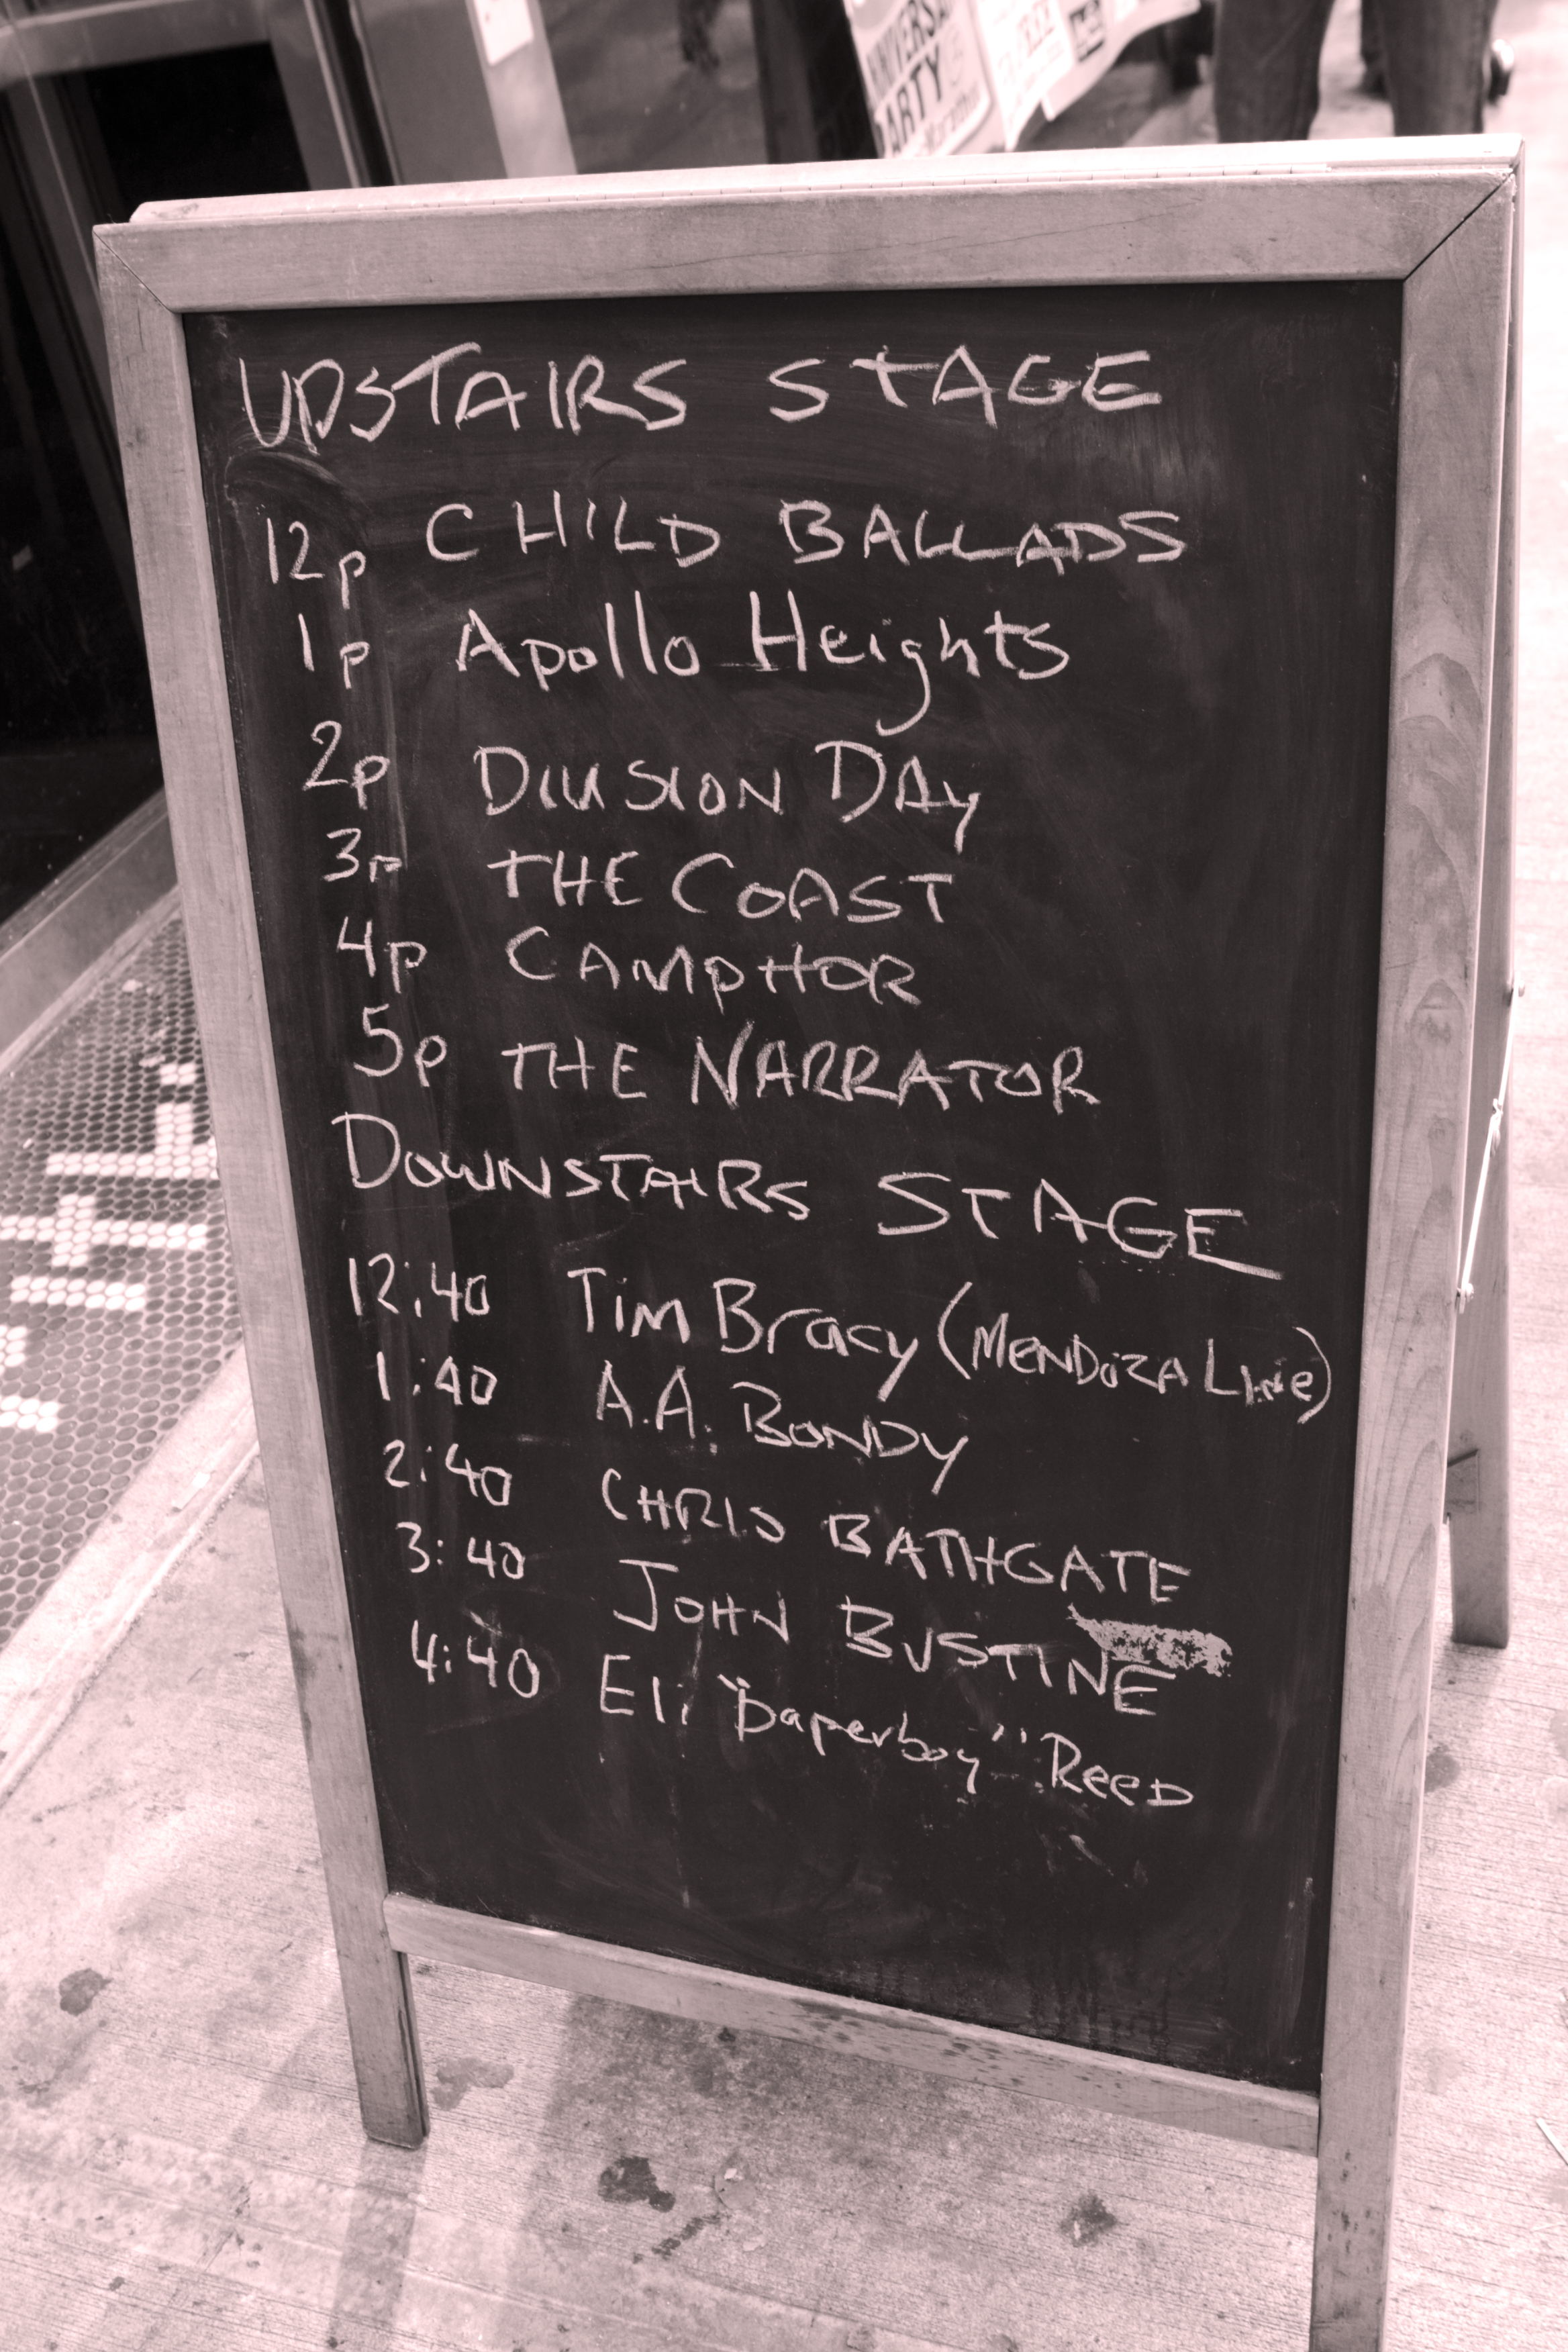 NIVERSA
PARTY
UPSTAIRS STAGE
12p CHILD BALLADS
1p Apollo Heights
2p DIVISION DAy
3p THE COAST
4p CAMPHOR
5p THE NARRATOR
DOWNSTAIRS STAGE
12:40 Tim Bracy (MENDOZA LINe)
1:40 A.A. BONDY
2:40 CHRIS BATHGATE
3:40 JOHN BUSTINE
4:40 Eli "paperboy" ReeD